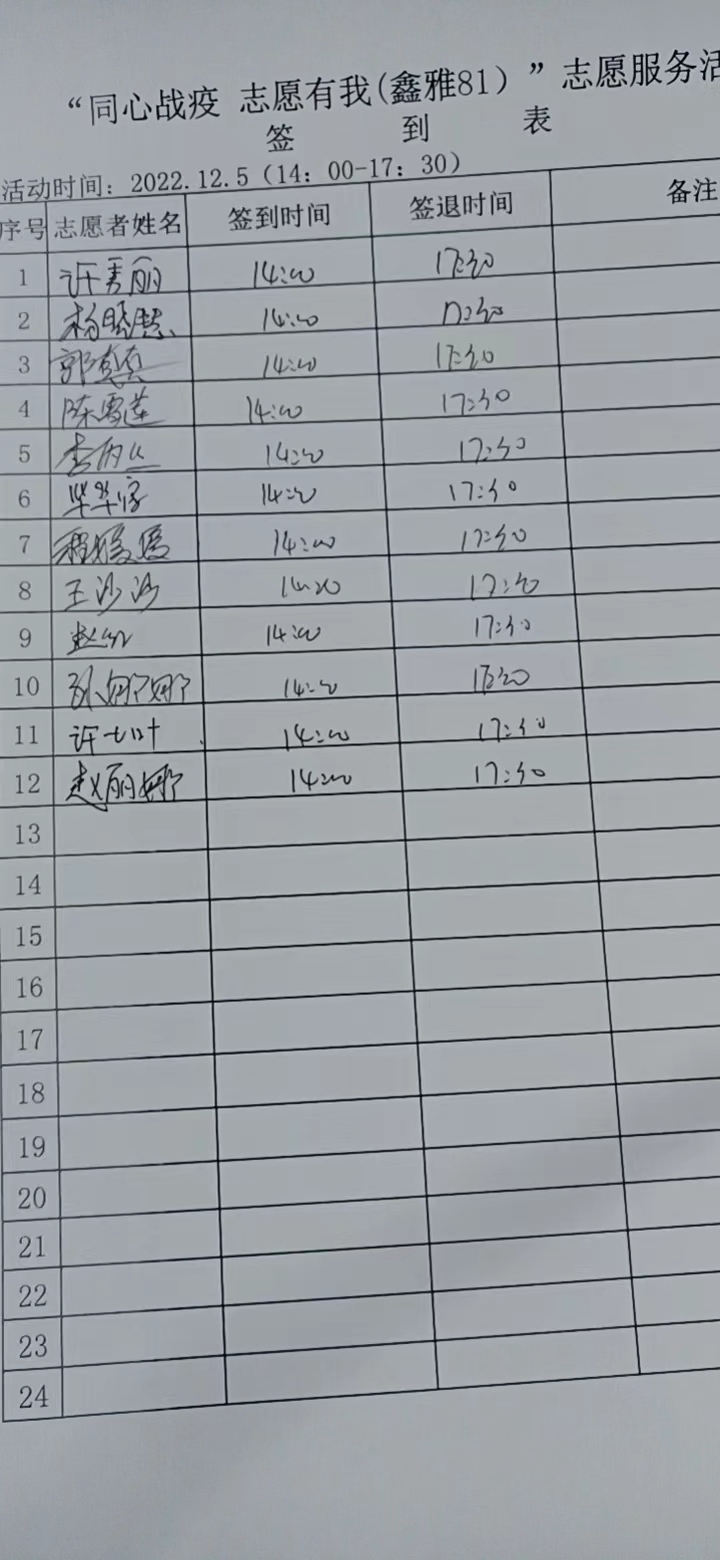 “同心战疫 志愿有我(鑫雅81)”志愿服务活
签 到 表
活动时间: 2022.12.5(14: 00-17: 30)
序号 志愿者姓名 签到时间 签退时间 备注
1 许秀丽 14:00 17:30
2 杨晓慧 14:00 17:30
3 郭真真 14:00 17:30
4 陈雪莲 14:00 17:30
5 李 14:00 17:30
6 14:00 17:30
7 程媛媛 14:00 17:30
8 王沙沙 14:00 17:30
9 赵 14:00 17:30
10 孙娜娜 14:00 17:30
11 许 14:00 17:30
12 赵丽娜 14:00 17:30
13
14
15
16
17
18
19
20
21
22
23
24